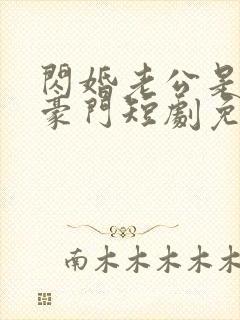 閃婚老公是
豪門短劇免
南木木木木木